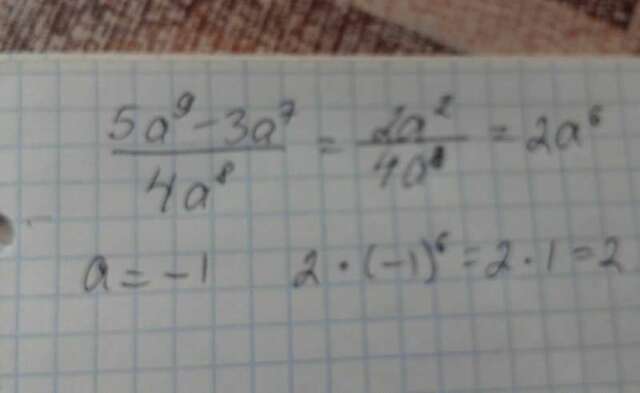 (5a⁹ - 3a⁷)/(4a⁸) = (2a²)/(4a⁸) = 2a⁶
a = -1 2 · (-1)⁶ = 2 · 1 = 2